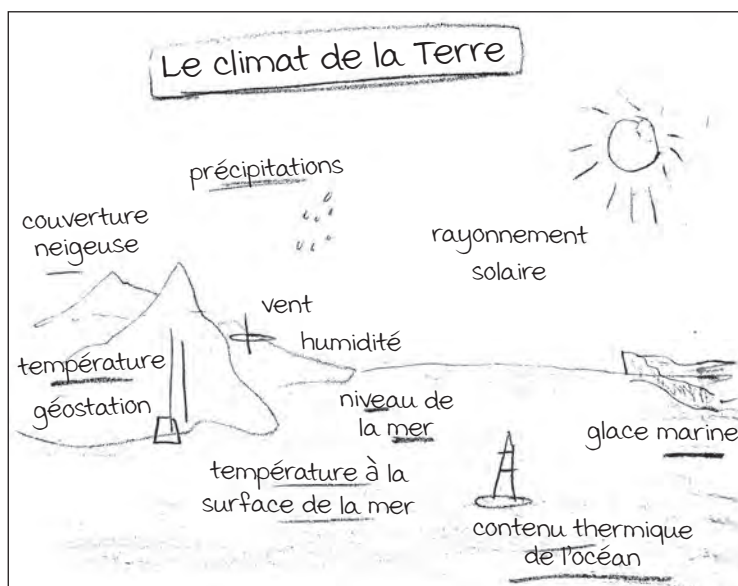 Le climat de la Terre
précipitations
couverture
neigeuse
rayonnement
solaire
vent
humidité
température
géostation
niveau de
la mer
glace marine
température à la
surface de la mer
contenu thermique
de l'océan